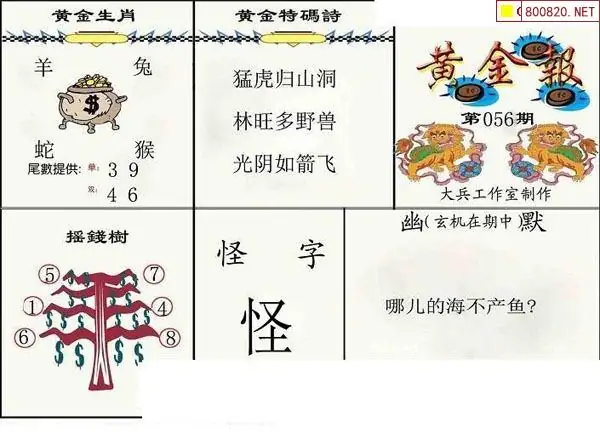 黄金生肖
羊 兔
蛇 猴
尾數提供: 单: 3 9
双: 4 6
黄金特碼詩
猛虎归山洞
林旺多野兽
光阴如箭飞
800820.NET
黄金報
第056期
大兵工作室制作
摇錢樹
⑤ ⑦
① ④
⑥ ⑧
怪 字
怪
幽(玄机在期中)默
哪儿的海不产鱼?